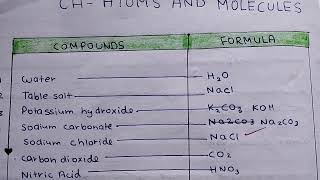 CH- ATOMS AND MOLECULES
COMPOUNDS FORMULA
Water H₂O
Table salt NaCl
Potassium hydroxide K₂CO₃ KOH
Sodium carbonate Na2CO3 Na₂CO₃
Sodium chloride NaCl
Carbon dioxide CO₂
Nitric Acid HNO₃